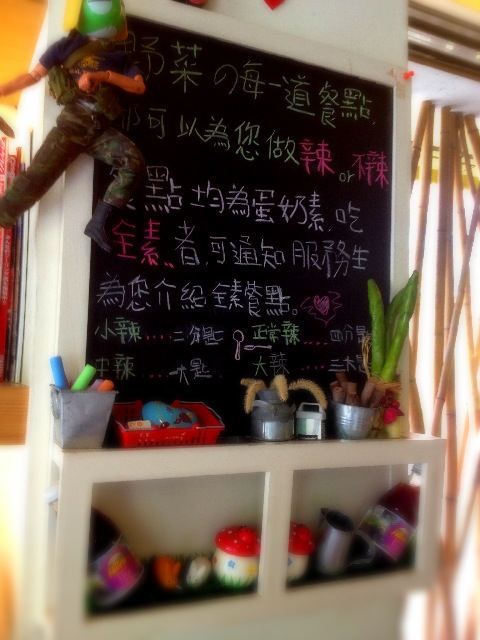 野菜の每一道餐點,
都可以為您做辣 or 不辣
餐點均為蛋奶素,吃
全素者,可通知服務生
為您介紹全素餐點。
小辣....二分匙 正常辣....四分匙
中辣....一大匙 大辣....三大匙